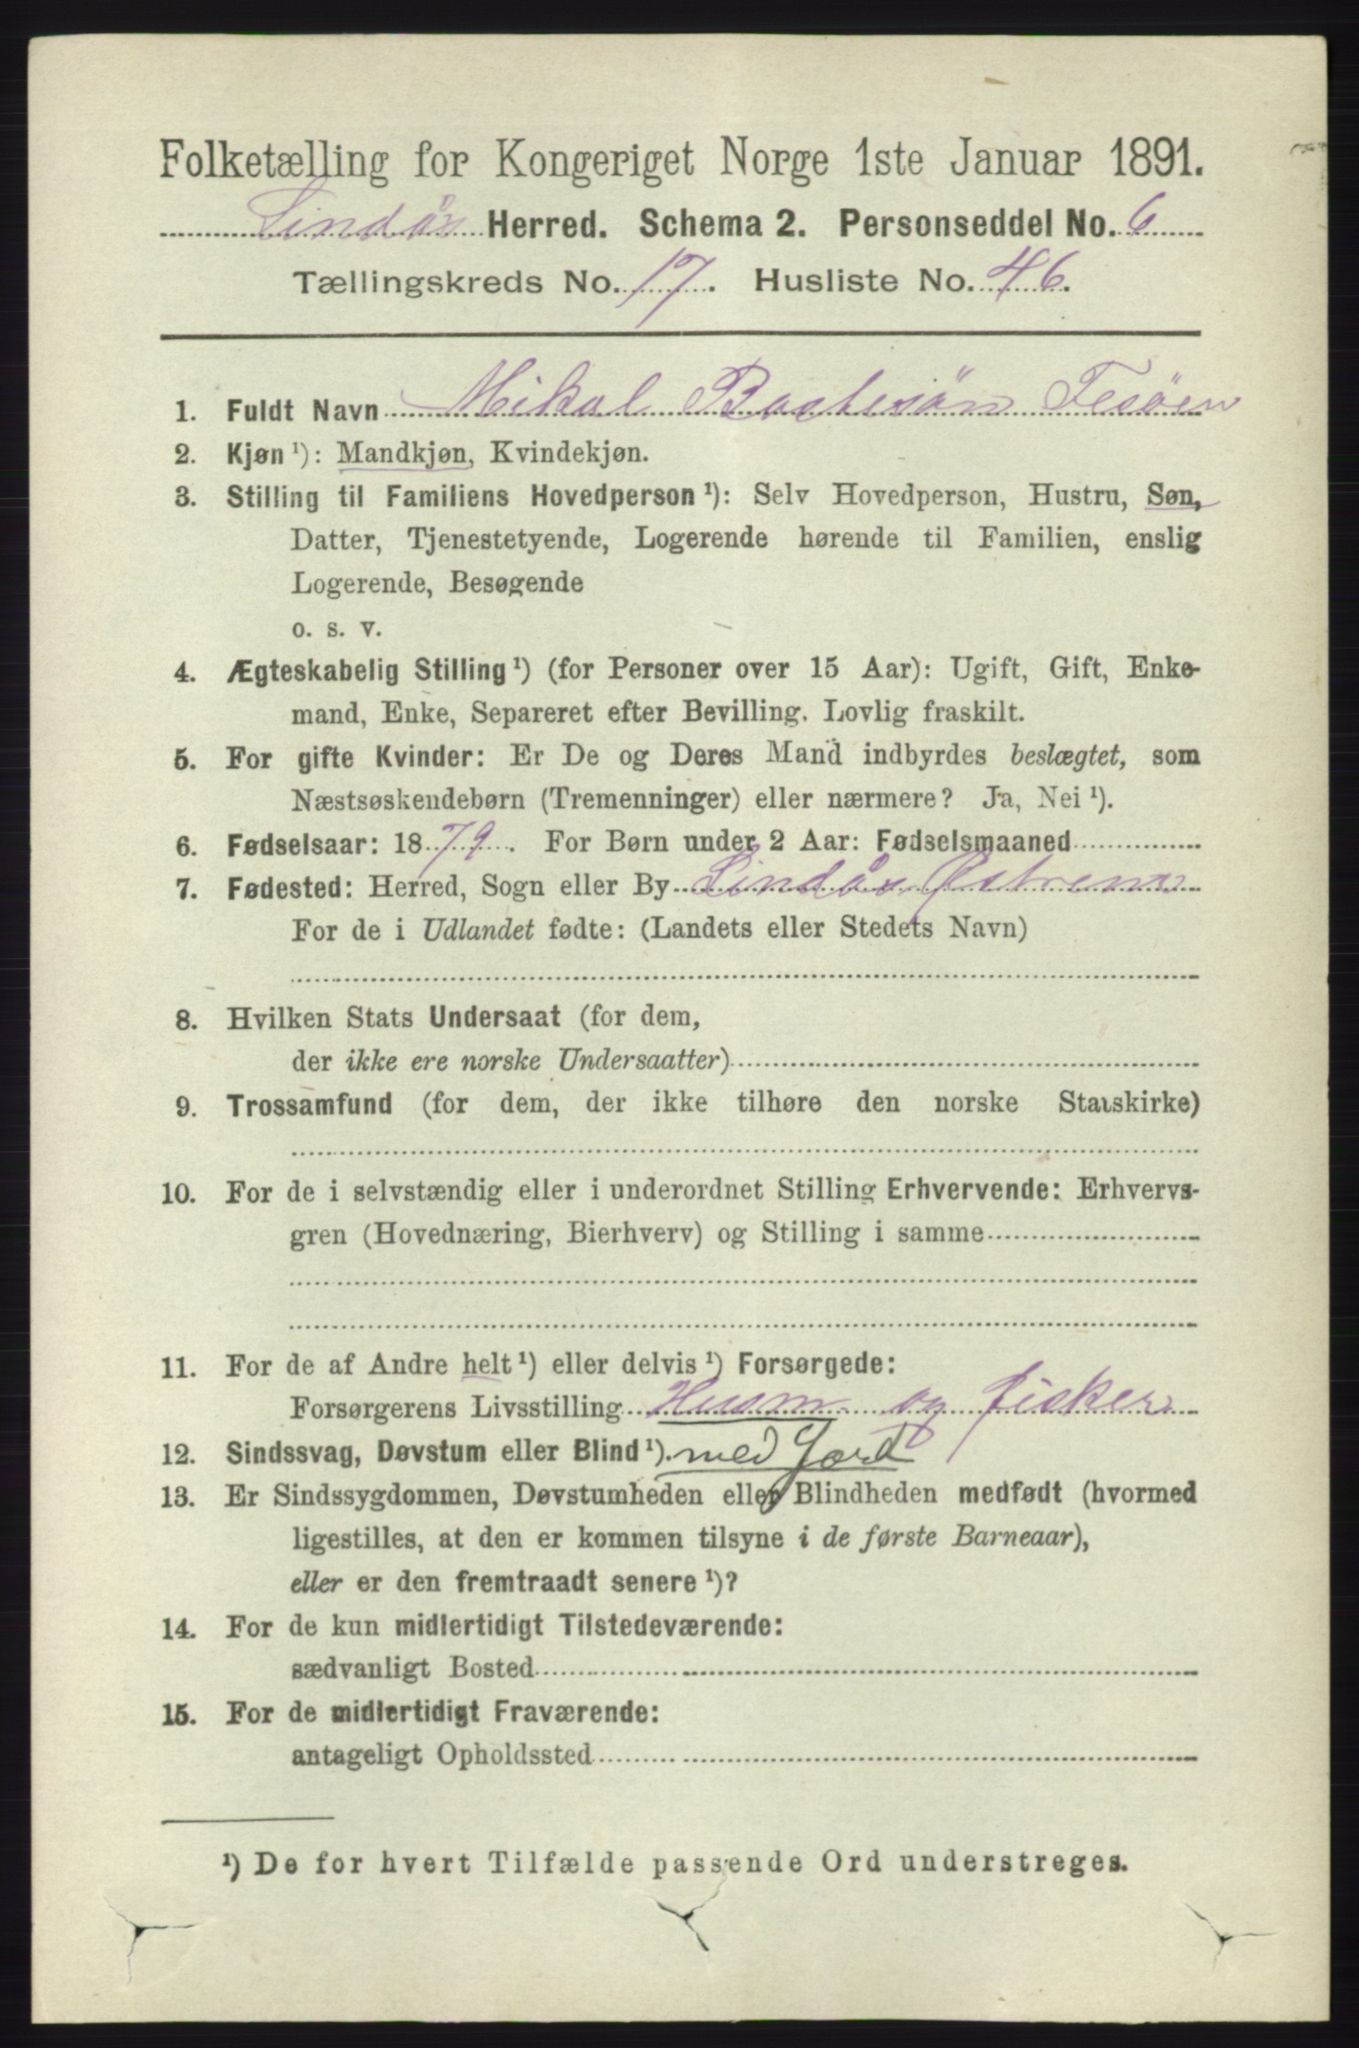 Folketælling for Kongeriget Norge 1ste Januar 1891.
Lindås Herred. Schema 2. Personseddel No. 6
Tællingskreds No. 17. Husliste No. 46.
1. Fuldt Navn Mikal Fesøen
2. Kjøn ¹): Mandkjøn, Kvindekjøn.
3. Stilling til Familiens Hovedperson ¹): Selv Hovedperson, Hustru, Søn,
Datter, Tjenestetyende, Logerende hørende til Familien, enslig
Logerende, Besøgende
o. s. v.
4. Ægteskabelig Stilling ¹) (for Personer over 15 Aar): Ugift, Gift, Enke-
mand, Enke, Separeret efter Bevilling. Lovlig fraskilt.
5. For gifte Kvinder: Er De og Deres Mand indbyrdes beslægtet, som
Næstsøskendebørn (Tremenninger) eller nærmere? Ja, Nei ¹).
6. Fødselsaar: 1879. For Børn under 2 Aar: Fødselsmaaned
7. Fødested: Herred, Sogn eller By Lindås
For de i Udlandet fødte: (Landets eller Stedets Navn)
8. Hvilken Stats Undersaat (for dem,
der ikke ere norske Undersaatter)
9. Trossamfund (for dem, der ikke tilhøre den norske Statskirke)
10. For de i selvstændig eller i underordnet Stilling Erhvervende: Erhvervs-
gren (Hovednæring, Bierhverv) og Stilling i samme
11. For de af Andre helt ¹) eller delvis ¹) Forsørgede:
Forsørgerens Livsstilling Husm. og fisker
12. Sindssvag, Døvstum eller Blind ¹). med Jord
13. Er Sindssygdommen, Døvstumheden eller Blindheden medfødt (hvormed
ligestilles, at den er kommen tilsyne i de første Barneaar),
eller er den fremtraadt senere ¹)?
14. For de kun midlertidigt Tilstedeværende:
sædvanligt Bosted
15. For de midlertidigt Fraværende:
antageligt Opholdssted
¹) De for hvert Tilfælde passende Ord understreges.